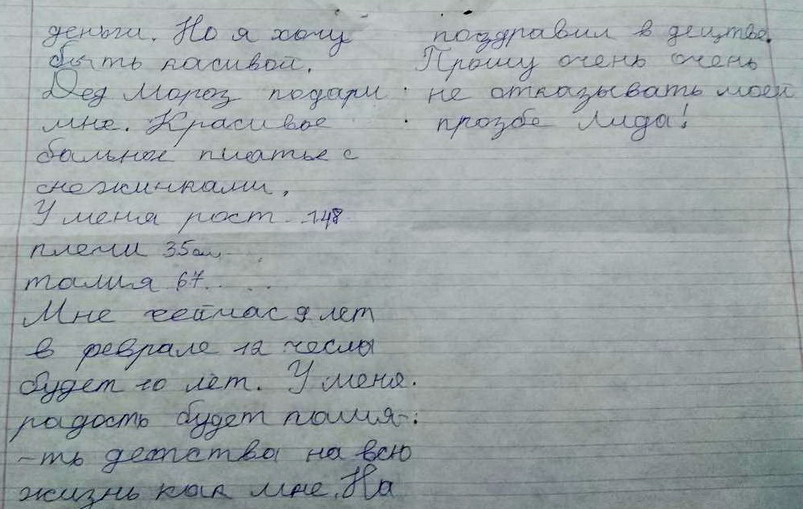 деньги. Но я хочу
быть касивой.
Дед Мороз подари
мне. Красивое
бальное платье с
снежинками.
У меня рост 148
плечи 35см
талия 67
Мне сейчас 9 лет
в феврале 12 числы
будет 10 лет. У меня.
радость будет памия-
-ть детства на всю
жизнь как мне. На
поздравил в децтве.
Прошу очень очень
не отказывать моей
прозбе Лида!